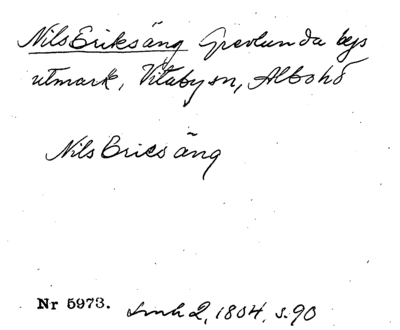 Nils Eriksäng Grevlunda bys
utmark, Vitaby sn, Albo hd
Nils Ericsäng
Nr 5973. Lmh 2, 1804, s. 90